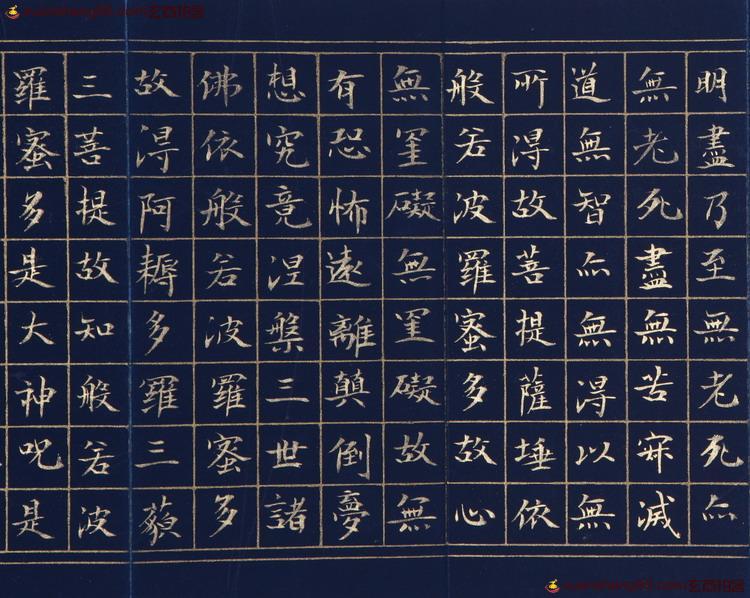 明盡乃至無老死亦
無老死盡無苦寂滅
道無智亦無得以無
所得故菩提薩埵依
般若波羅蜜多故心
無罣礙無罣礙故無
有恐怖遠離顛倒夢
想究竟涅槃三世諸
佛依般若波羅蜜多
故得阿耨多羅三藐
三菩提故知般若波
羅蜜多是大神呪是